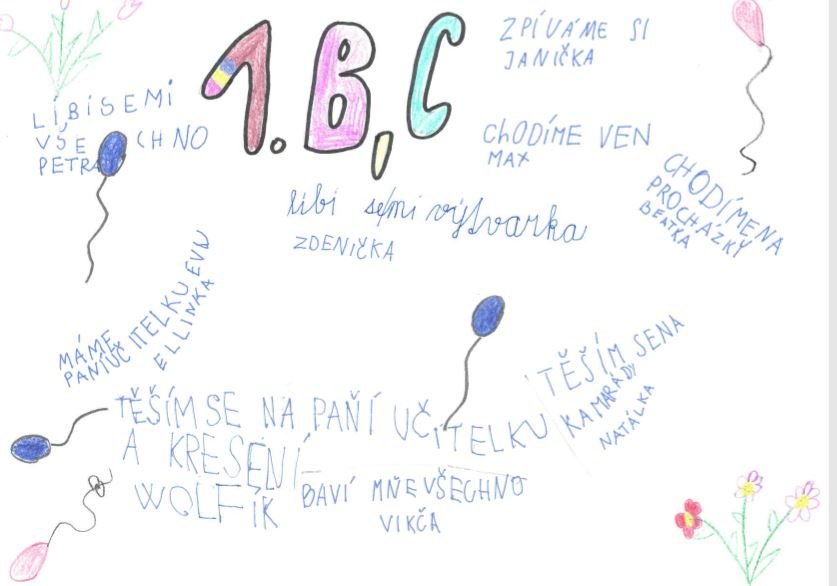 1.B,C
ZPÍVÁME SI
JANIČKA
LÍBISEMI
VŠECHNO
PETRA
CHODÍME VEN
MAX
CHODÍMENA
PROCHÁZKY
BEATKA
líbí semi výtvarka
ZDENIČKA
MÁME
PANÍUČITELKU EVU
ELLINKA
TĚŠÍM SENA
KAMARÁDY
NATÁLKA
TĚŠÍMSE NA PAŇÍ UČITELKU
A KRESENÍ
WOLFÍK
BAVÍ MŇEVŠECHNO
VIKČA